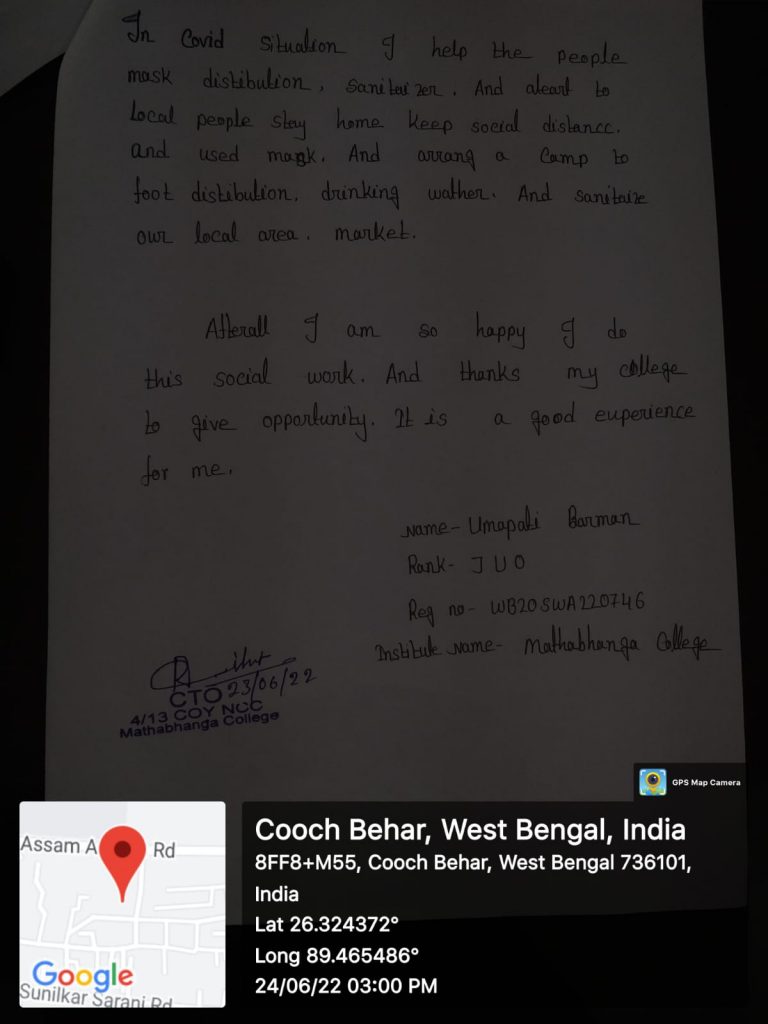 In Covid Situation I help the people
mask distibution, sanitaizer. And aleart to
local people stay home keep social distance.
and used mask. And arrang a Camp to
foot distibution, drinking wather. And sanitaize
our local area. market.
Afterall I am so happy I do
this social work. And thanks my college
to give opportunity. It is a good euperience
for me.
Name- Umapati Barman
Rank- JUO
Reg no- WB20SWA220746
Institute Name- Mathabhanga College
CTO 23/06/22
4/13 COY NCC
Mathabhanga College
GPS Map Camera
Assam A Rd
Google
Sunilkar Sarani Rd
Cooch Behar, West Bengal, India
8FF8+M55, Cooch Behar, West Bengal 736101,
India
Lat 26.324372°
Long 89.465486°
24/06/22 03:00 PM